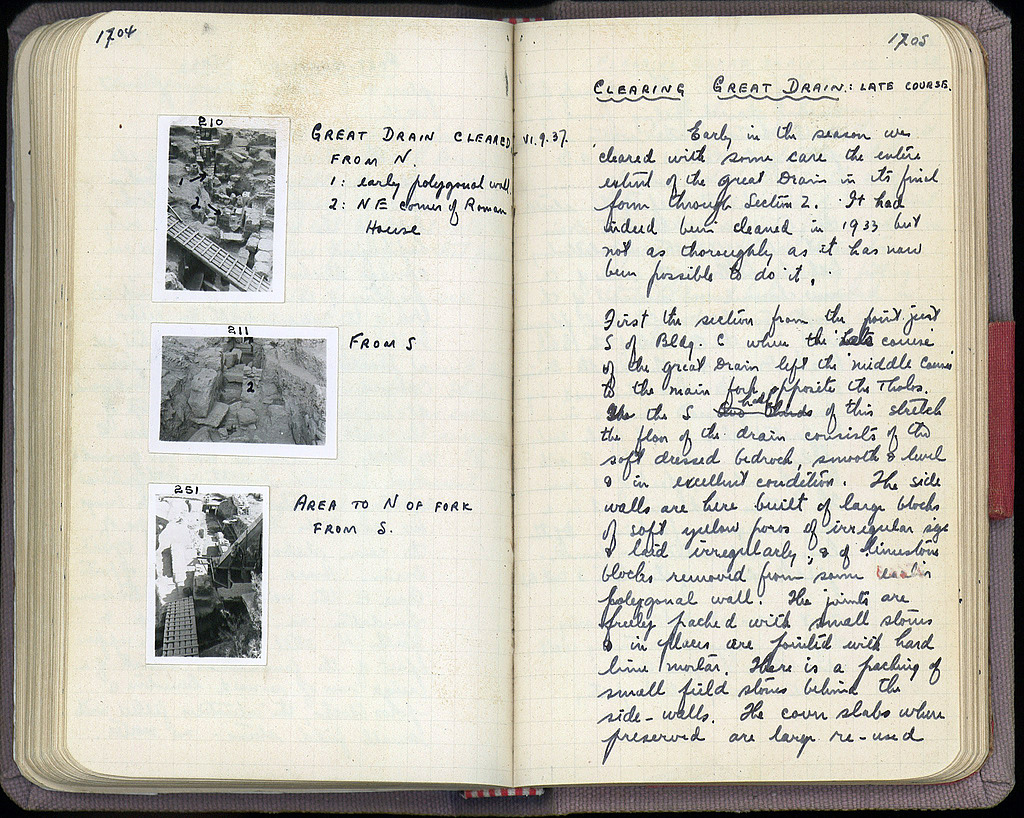 1704
210
GREAT DRAIN CLEARED VI.9.37.
FROM N.
1: early polygonal wall
2: NE corner of Roman
House
1
2
211
FROM S
2
251
AREA TO N OF FORK
FROM S.
1705
CLEARING GREAT DRAIN: LATE COURSE.
Early in the season we
cleared with some care the entire
extent of the Great Drain in its final
form through Section Z. It had
indeed been cleaned in 1933 but
not as thoroughly as it has now
been possible to do it.
First the section from the point just
S of Bldg. C where the late course
of the great Drain left the middle course
to the main fork opposite the Tholos.
In the S half of this stretch
the floor of the drain consists of the
soft dressed bedrock, smooth & level
& in excellent condition. The side
walls are here built of large blocks
of soft yellow poros of irregular size
& laid irregularly, & of limestone
blocks removed from some earlier
polygonal wall. The joints are
freely packed with small stones
& in places are pointed with hard
lime mortar. There is a packing of
small field stones behind the
side-walls. The cover slabs where
preserved are large re-used